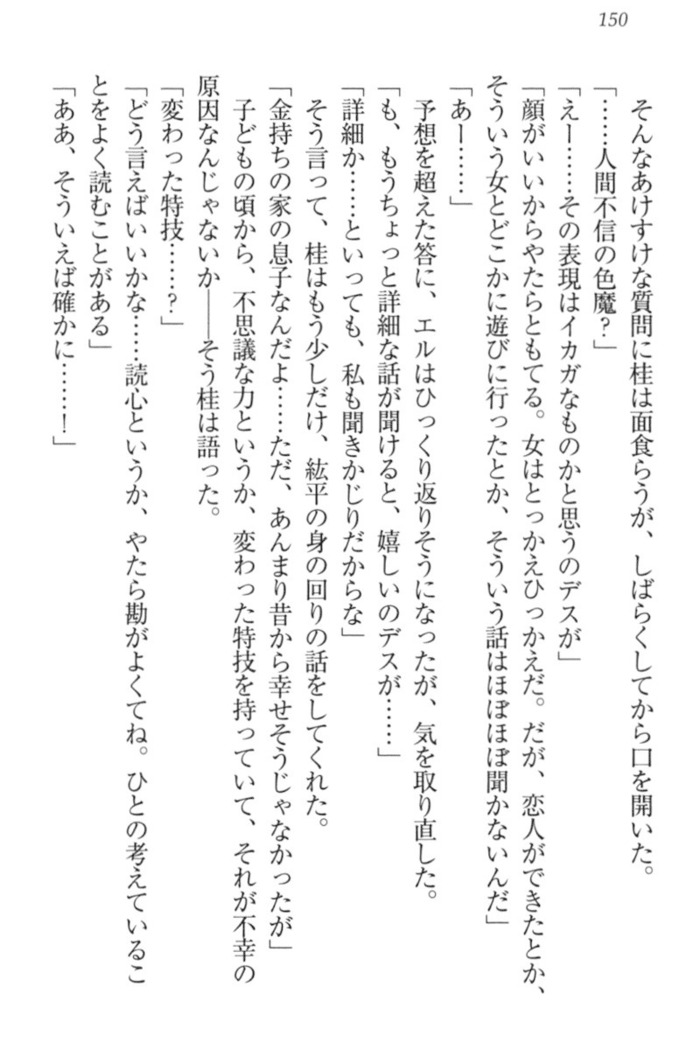 150
そんなあけすけな質問に桂は面食らうが、しばらくしてから口を開いた。
「……人間不信の色魔?」
「えー……その表現はイカガなものかと思うのデスが」
「顔がいいからやたらともてる。女はとっかえひっかえだ。だが、恋人ができたとか、
そういう女とどこかに遊びに行ったとか、そういう話はほぼほぼ聞かないんだ」
「あー……」
予想を超えた答に、エルはひっくり返りそうになったが、気を取り直した。
「も、もうちょっと詳細な話が聞けると、嬉しいのデスが……」
「詳細か……といっても、私も聞きかじりだからな」
そう言って、桂はもう少しだけ、紘平の身の回りの話をしてくれた。
「金持ちの家の息子なんだよ……ただ、あんまり昔から幸せそうじゃなかったが」
子どもの頃から、不思議な力というか、変わった特技を持っていて、それが不幸の
原因なんじゃないか――そう桂は語った。
「変わった特技……?」
「どう言えばいいかな……読心というか、やたら勘がよくてね。ひとの考えているこ
とをよく読むことがある」
「ああ、そういえば確かに……!」